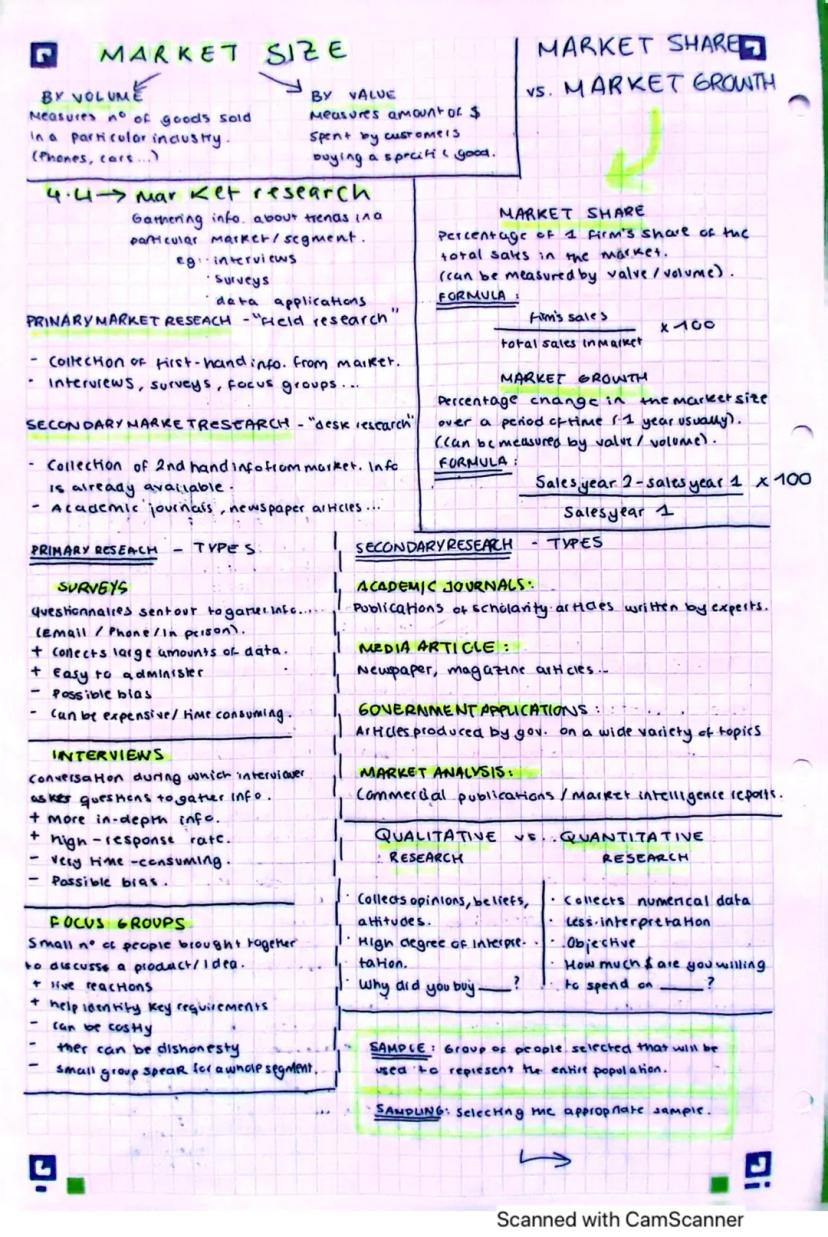 MARKET SIZE
BY VOLUME
Measures nº of goods sold
in a particular industry.
(Phones, cars...)
BY VALUE
Measures amount of $
spent by customers
buying a specific good.
MARKET SHARE
vs. MARKET GROWTH
4.4 → market research
Gathering info. about trends in a
particular market/segment.
eg: · interviews
· surveys
· data applications
PRIMARY MARKET RESEACH - "field research"
- Collection of first-hand info. from market.
- Interviews, surveys, focus groups...
SECONDARY MARKET RESEARCH - "desk research"
- Collection of 2nd hand info from market. Info
is already available.
- Academic journals, newspaper articles...
MARKET SHARE
Percentage of 1 firm's share of the
total sales in the market.
(Can be measured by value/volume).
FORMULA:
firm's sales
total sales in market
x 100
MARKET GROWTH
Percentage change in the market size
over a period of time (-1 year usually).
(Can be measured by value/volume).
FORMULA:
Sales year 2 - sales year 1 x 100
Sales year 1
PRIMARY RESEACH - TYPES
SURVEYS
Questionnaires sent out to gather info....
(Email / Phone / In person).
+ Collects large amounts of data.
+ Easy to administer
- Possible bias
- Can be expensive / time consuming.
INTERVIEWS
Conversation during which interviewer
asks questions to gather info.
+ more in-depth info.
+ high-response rate.
- very time-consuming.
- Possible bias.
FOCUS GROUPS
Small nº of people brought together
to discuss a product/idea.
+ live reactions
+ help identify key requirements
- can be costly
- ther can be dishonesty
- small group speak for a whole segment.
SECONDARY RESEARCH - TYPES
ACADEMIC JOURNALS:
Publications of scholarity articles written by experts.
MEDIA ARTICLE:
Newspaper, magazine articles...
GOVERNMENT APPLICATIONS:
Articles produced by gov. on a wide variety of topics
MARKET ANALYSIS:
Commercial publications / Market intelligence reports.
QUALITATIVE vs. QUANTITATIVE
RESEARCH RESEARCH
· Collects opinions, beliefs,
attitudes.
· High degree of interpre-
tation.
· Why did you buy ____?
· Collects numerical data
· Less interpretation
· Objective
· How much $ are you willing
to spend on ____?
SAMPLE: Group of people selected that will be
used to represent the entire population.
SAMPLING: Selecting the appropriate sample.
Scanned with CamScanner